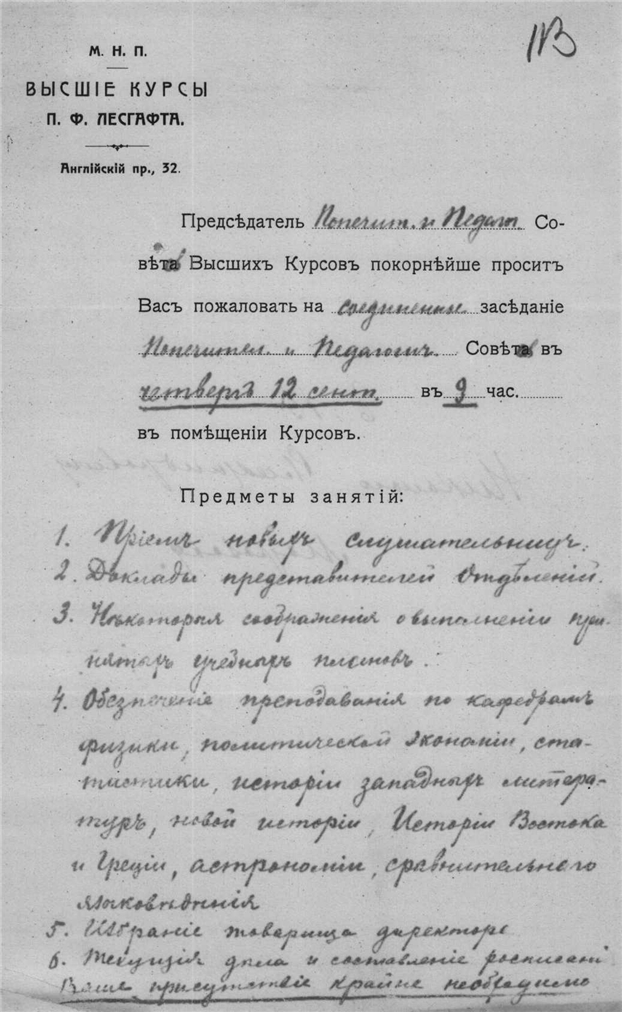 М. Н. П.
ВЫСШІЕ КУРСЫ
П. Ф. ЛЕСГАФТА.
Англійскій пр., 32.
Предсѣдатель Попечит. и Педаг. Со-
вѣта Высшихъ Курсовъ покорнѣйше проситъ
Васъ пожаловать на соединенные засѣданіе
Попечител. и Педагогич. Совѣта въ
четвергъ 12 сент. въ 9 час.
въ помѣщеніи Курсовъ.
Предметы занятій:
1. Пріемъ новыхъ слушательницъ.
2. Доклады представителей Отдѣленій.
3. Нѣкоторыя соображенія о выполненіи при-
нятыхъ учебныхъ плановъ.
4. Обезпеченіе преподаванія по кафедрамъ
физики, политической экономіи, ста-
тистики, исторіи западныхъ литера-
туръ, новой исторіи, Исторіи Востока
и Греціи, астрономіи, сравнительного
языковѣдѣнія
5. Избраніе товарища директора
6. Текущія дѣла и составленіе росписаній
Ваше присутствіе крайне необходимо